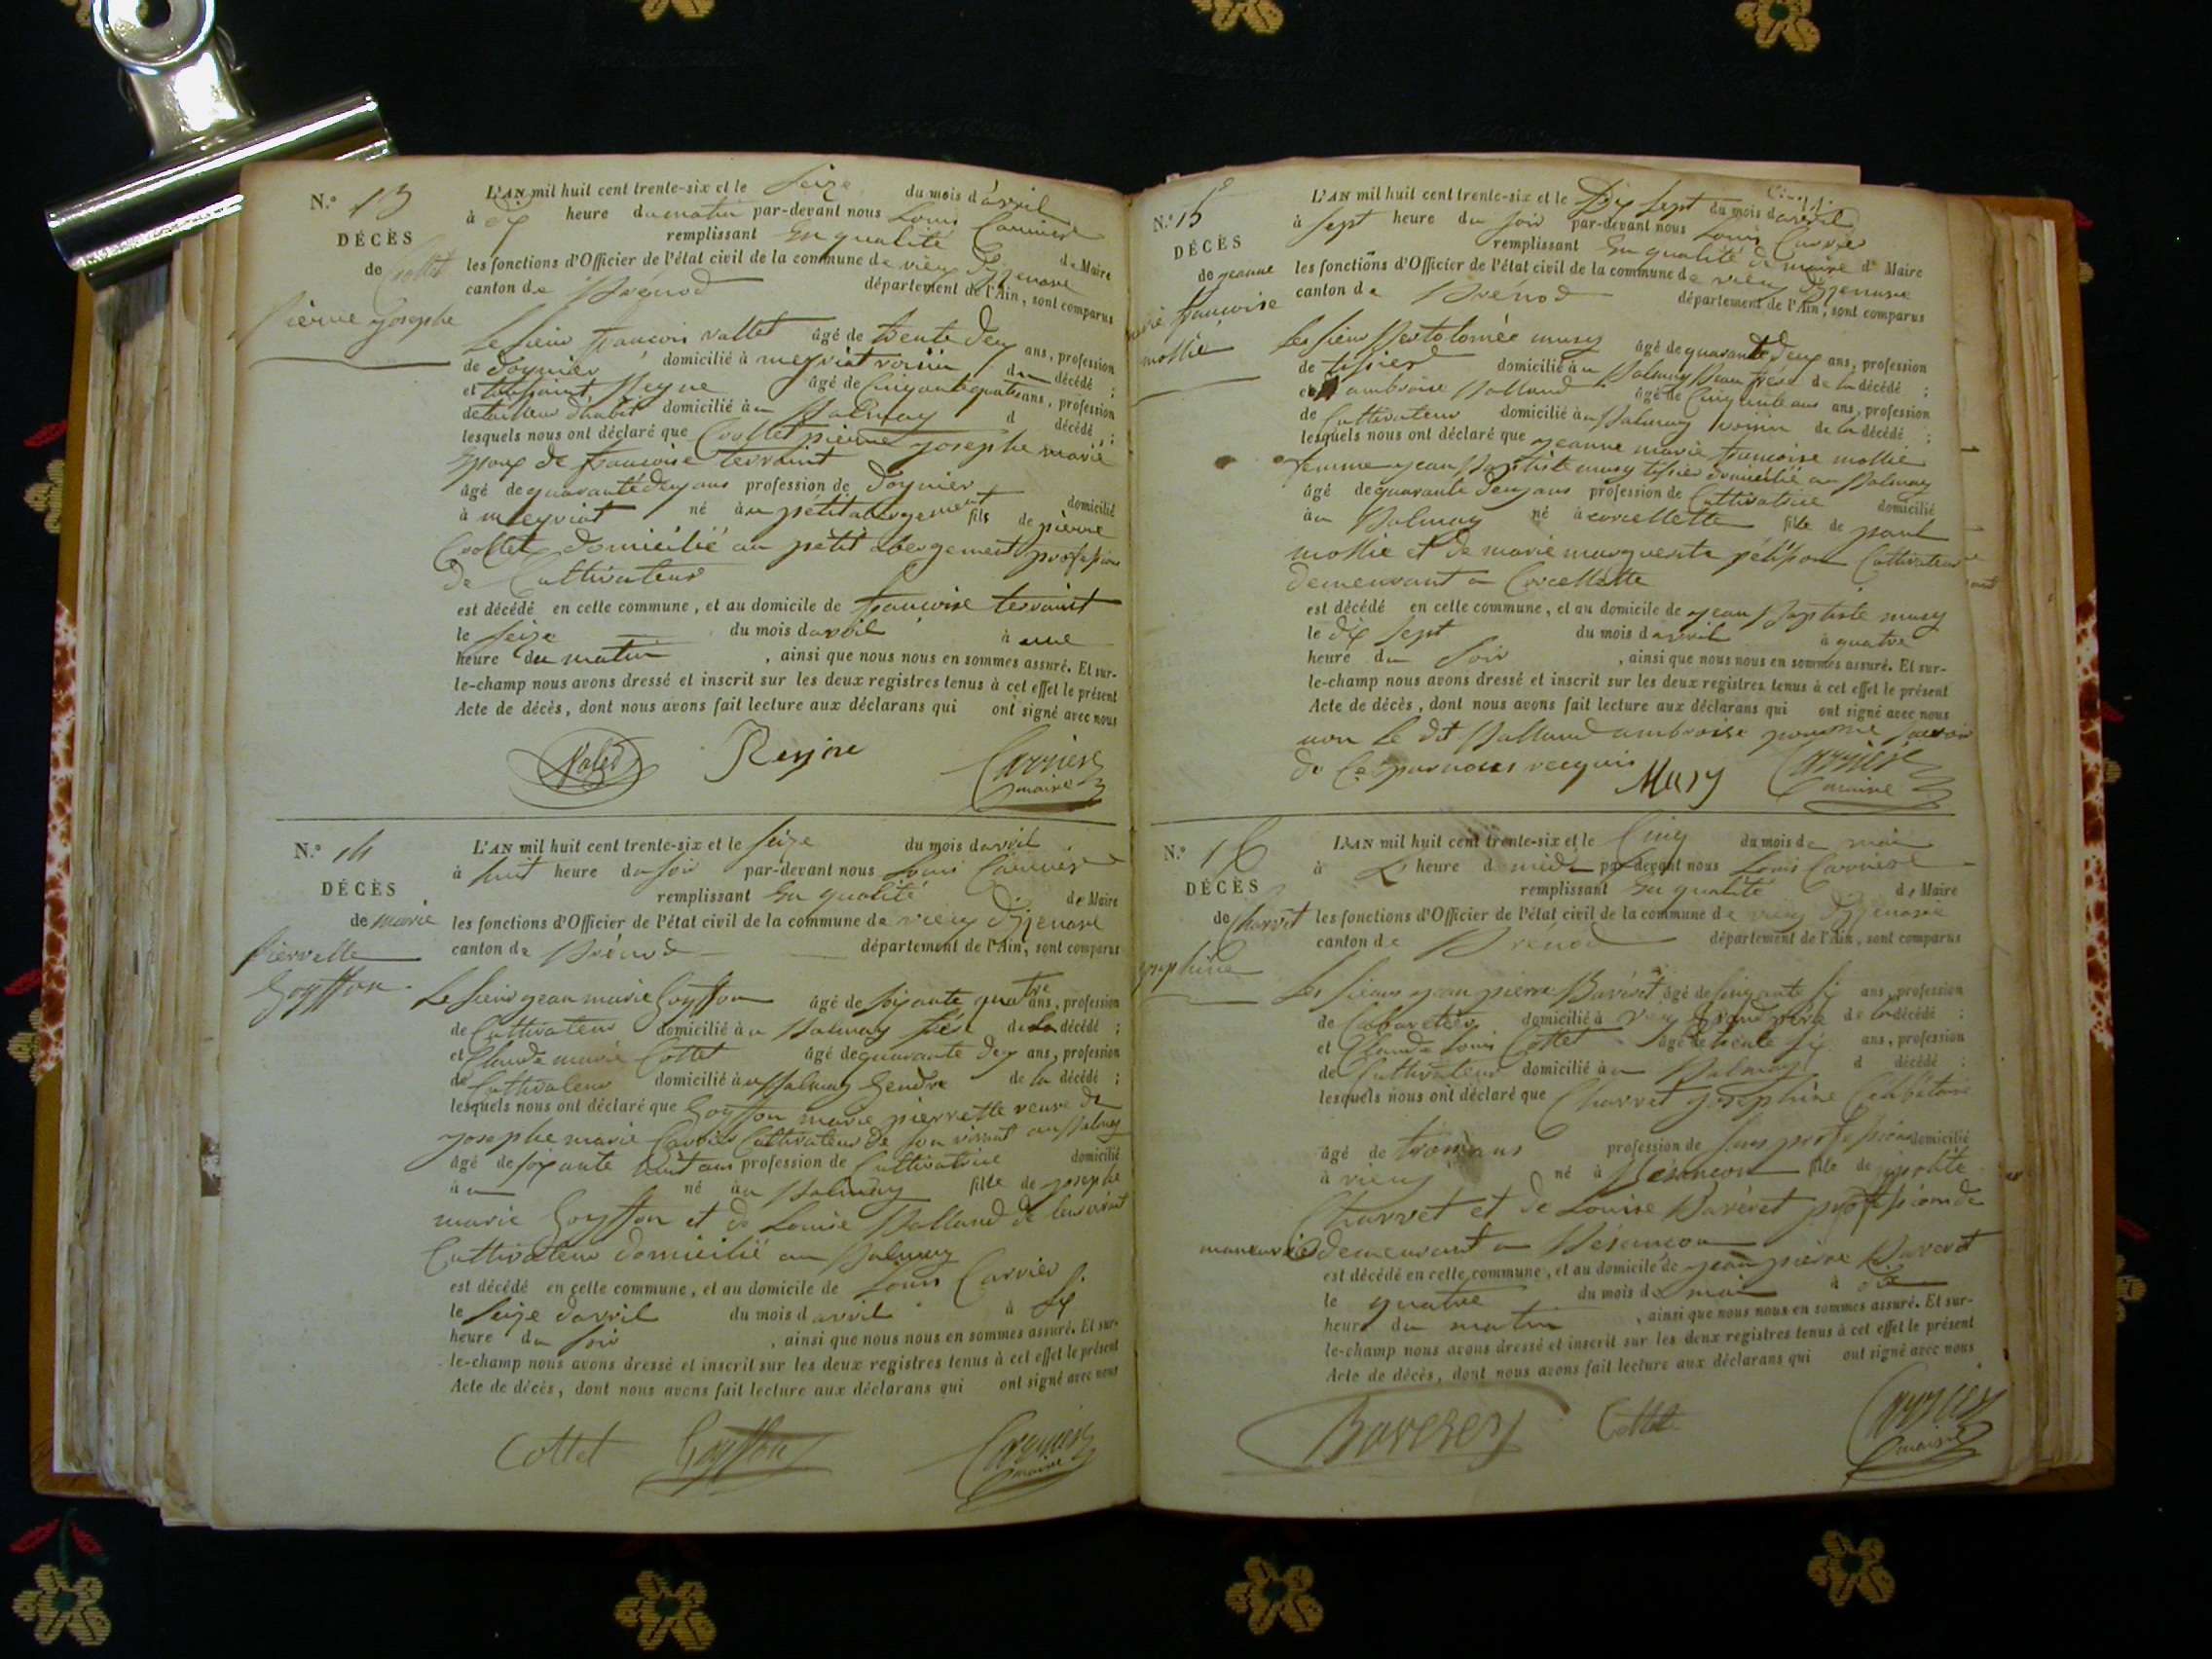 N.o 13
DÉCÈS
de Collet
pierre Josephe
L'AN mil huit cent trente-six et le seize du mois d'avril
à dix heure du matin par-devant nous Louis Carrier
remplissant En qualité de Maire
les fonctions d'Officier de l'état civil de la commune de vieux Dizenave
canton de Brénod département de l'Ain, sont comparus
Le sieur françois vallet âgé de trente deux ans, profession
de domicilié à meyriat voisin du décédé ;
et âgé de Cinquante quatre ans, profession
de tailleur d'habit domicilié à u Balmay d décédé ;
lesquels nous ont déclaré que Collet pierre Josephe marié
Epoux de francoise terraint
âgé de quarante deux ans profession de domicilié
à meyriat né à u petit abergement fils de pierre
Collet domicilié au petit abergement profession
de Cultivateur
est décédé en cette commune, et au domicile de francoise terraint
le seize du mois d avril à une
heure du matin , ainsi que nous nous en sommes assuré. Et sur-
le-champ nous avons dressé et inscrit sur les deux registres tenus à cet effet le présent
Acte de décès, dont nous avons fait lecture aux déclarans qui ont signé avec nous
Carrier
maire
N.o 14
DÉCÈS
de marie
pierrette
Goyffon
L'AN mil huit cent trente-six et le seize du mois d avril
à huit heure du soir par-devant nous Louis Carrier
remplissant En qualité de Maire
les fonctions d'Officier de l'état civil de la commune de vieux Dizenave
canton de Brénod département de l'Ain, sont comparus
Le sieur jean marie Goyffon âgé de soixante quatre ans, profession
de Cultivateur domicilié à u Balmay frère de la décédé ;
et Claude marie Cottet âgé de quarante deux ans, profession
de Cultivateur domicilié à u Balmay Gendre de la décédé ;
lesquels nous ont déclaré que Goyffon marie pierrette veuve de
josephe marie Carrier Cultivateur de son vivant au Balmay
âgé de soixante huit ans profession de Cultivatrice domicilié
à u né à u Balmay fille de josephe
marie Goyffon et de Louise Balland de leur vivant
Cultivateur domicilié au Balmay
est décédé en cette commune, et au domicile de Louis Carrier
le seize d avril du mois d avril à six
heure du soir , ainsi que nous nous en sommes assuré. Et sur-
le-champ nous avons dressé et inscrit sur les deux registres tenus à cet effet le présent
Acte de décès, dont nous avons fait lecture aux déclarans qui ont signé avec nous
Cottet Goyffon Carrier
maire
N.o 15
DÉCÈS
de jeanne
marie francoise
mollie
L'AN mil huit cent trente-six et le Dix sept du mois d avril
à sept heure du soir par-devant nous Louis Carrier
remplissant En qualité de maire de Maire
les fonctions d'Officier de l'état civil de la commune de vieux Dizenave
canton de Brénod département de l'Ain, sont comparus
Les sieur Bertolomée musy âgé de quarante deux ans, profession
de tisier domicilié à u Balmay Beau frère de la décédé ;
et ambroise Balland âgé de Cinquante ans ans, profession
de Cultivateur domicilié à u Balmay voisin de la décédé ;
lesquels nous ont déclaré que jeanne marie francoise mollie
femme jean Baptiste musy tisier domicilié au Balmay
âgé de quarante deux ans profession de Cultivatrice domicilié
à u Balmay né à corcellette fille de paul
mollie et de marie marguerite petitpon Cultivateur
demeurant a Corcellette
est décédé en cette commune, et au domicile de jean Baptiste musy
le dix sept du mois d avril à quatre
heure du soir , ainsi que nous nous en sommes assuré. Et sur-
le-champ nous avons dressé et inscrit sur les deux registres tenus à cet effet le présent
Acte de décès, dont nous avons fait lecture aux déclarans qui ont signé avec nous
non le dit Balland ambroise pour ne savoir
de Ce par nous requis Musy Carrier
maire
N.o 16
DÉCÈS
de Charvet
josephine
L'AN mil huit cent trente-six et le Cinq du mois de mai
à heure d midi par-devant nous Louis Carrier
remplissant En qualité de Maire
les fonctions d'Officier de l'état civil de la commune de vieux Dizenave
canton de Brénod département de l'Ain, sont comparus
Les sieurs jean pierre Baveret âgé de Cinquante six ans, profession
de Cabaretier domicilié à vieux Grand père de la décédé ;
et Claude Louis Cottet âgé de trente six ans, profession
de Cultivateur domicilié à u Balmay d décédé ;
lesquels nous ont déclaré que Charvet josephine Célibataire
âgé de trois ans profession de sans profession domicilié
à vieux né à Besancon fille de ipolite
Charvet et de Louise Baveret profession de
maneuvrié demeurant a Besancon
est décédé en cette commune, et au domicile de jean pierre Baveret
le quatre du mois de mai à dix
heure du matin , ainsi que nous nous en sommes assuré. Et sur-
le-champ nous avons dressé et inscrit sur les deux registres tenus à cet effet le présent
Acte de décès, dont nous avons fait lecture aux déclarans qui ont signé avec nous
Baverey Cottet Carrier
maire